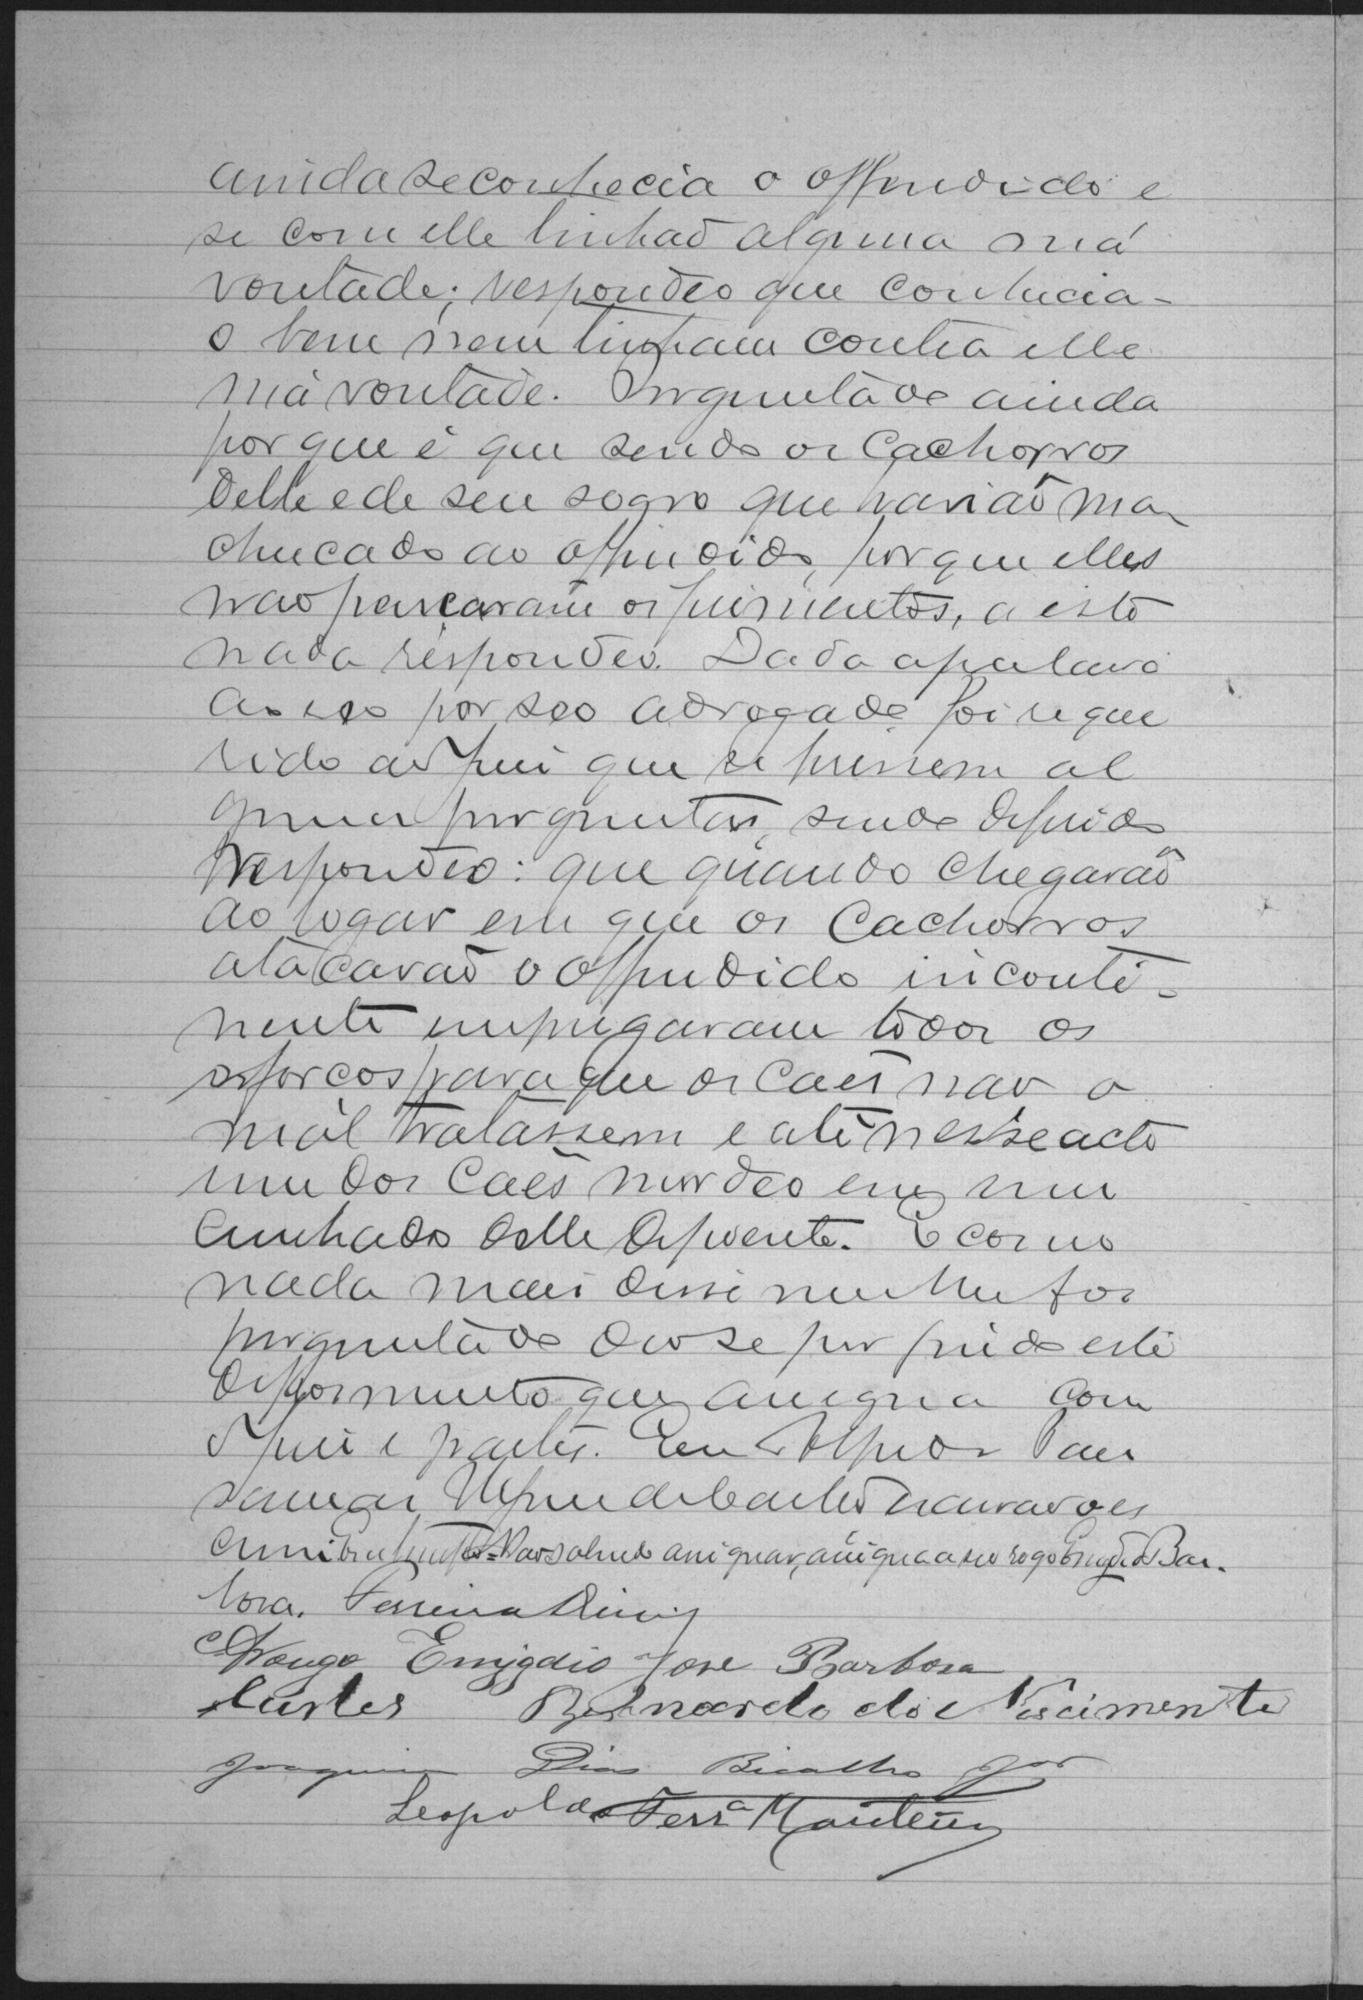 ainda se conhecia o offendido e
se com elle tinhaõ alguma má
vontade; respondeo que conhecia-
o bem nem tinham contra elle
má vontade. Perguntado ainda
por que é que sendo os cachorros
delle e de seu sogro que haviaõ ma
chucado ao offendido, por que elles
nao pensaram os ferimentos, a esto
nada respondeo. Dada a palavra
ao reo por seo advogado foi reque
rido ao Juiz que se fizessem al
gumas perguntas, sendo deferido
respondeo: que quando chegaraõ
ao logar em que os cachorros
atacaraõ o offendido inconti-
nente empregaram todos os
esforços para que os caes nao o
mal tratassem e até nesse acto
um dos caes mordeo em um
cunhado delle depoente. E como
nada mais disse nem lhe foi
perguntado deo se por findo este
depoimento que assigna com
o Juiz e partes. Eu
escrivaõ
escrevi. Naõ sabendo assignar, assigna a seo rogo Emygdio Bar-
bosa. Ferreira Diniz
Emigdio Jose Barbosa
Bernardo do Nascimento
Joaquim Dias Bicalho Jor
Leopoldo Ferrª Monteiro